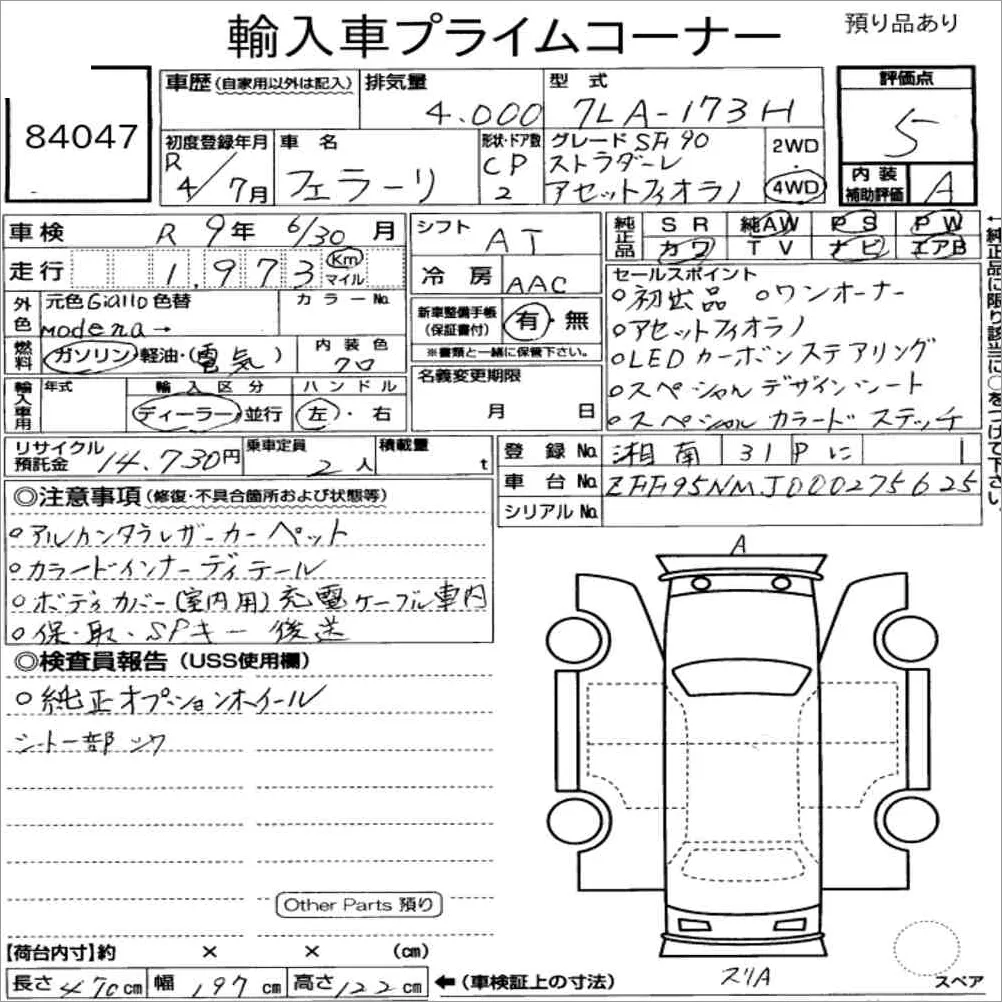 輸入車プライムコーナー
預り品あり
84047
車歴(自家用以外は記入)
排気量 4.000
型式 7LA-173H
評価点 5
初度登録年月 R 4/7月
車名 フェラーリ
形状・ドア数 CP 2
グレード SF90
ストラダーレ
アセットフィオラノ
2WD
・
4WD
内装補助評価 A
車検 R 9年 6/30月
シフト AT
純正品 SR 純AW PS PW
カワ TV ナビ エアB
走行 1,973 Km マイル
冷房 AAC
外色 元色Giallo色替
Modena→
カラーNo.
新車整備手帳(保証書付) 有・無
※書類と一緒に保管下さい。
燃料 ガソリン・軽油・(電気)
内装色 クロ
セールスポイント
○初出品 ○ワンオーナー
○アセットフィオラノ
○LEDカーボンステアリング
○スペシャルデザインシート
○スペシャルカラードステッチ
←純正品に限り該当に○をつけて下さい。
輸入車用 年式
輸入区分 ディーラー・並行
ハンドル 左・右
名義変更期限
月 日
リサイクル預託金 14.730円
乗車定員 2人
積載量 t
登録No. 湘南 31P に 1
車台No. ZFF95NMJ000275625
シリアルNo.
◎注意事項(修復・不具合箇所および状態等)
○アルカンタラレザーカーペット
○カラードインナーディテール
○ボディカバー(室内用)充電ケーブル車内
○保・取・SPキー後送
◎検査員報告(USS使用欄)
○純正オプションホイール
シート一部シワ
A
Other Parts 預り
【荷台内寸】約 × × (cm)
長さ470cm 幅197cm 高さ122cm
←(車検証上の寸法)
スリA
スペア